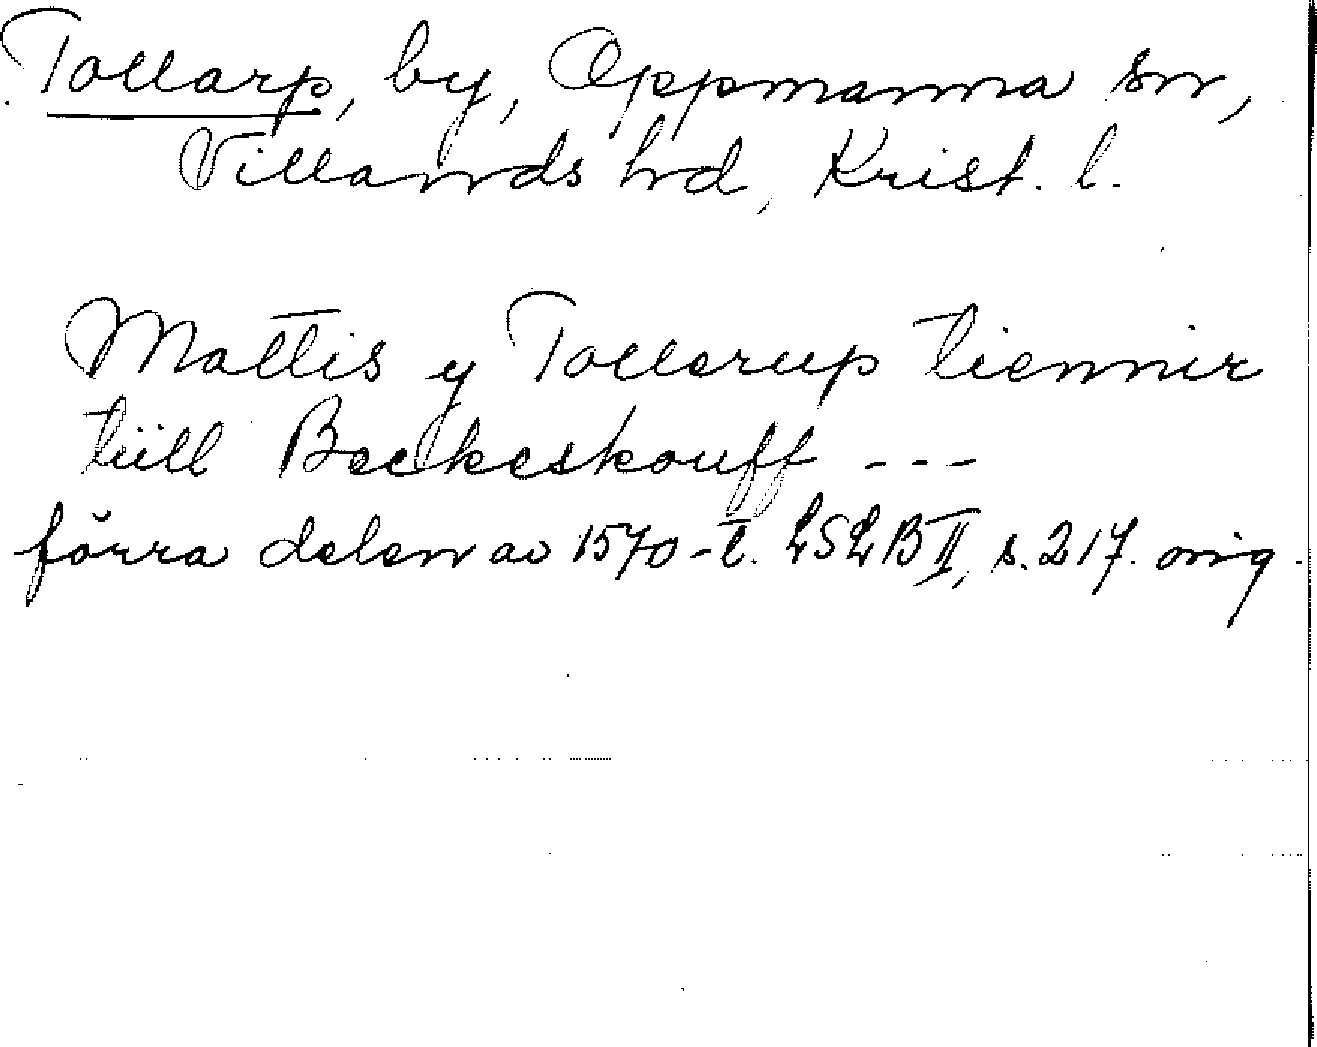 Tollarp, by, Oppmanna sn,
Villands hd, Krist. l.
Mattis y Tollerup tiennir
tiill Beckeskouff ---
förra delen av 1570-t. LSLB II, s. 217. orig.